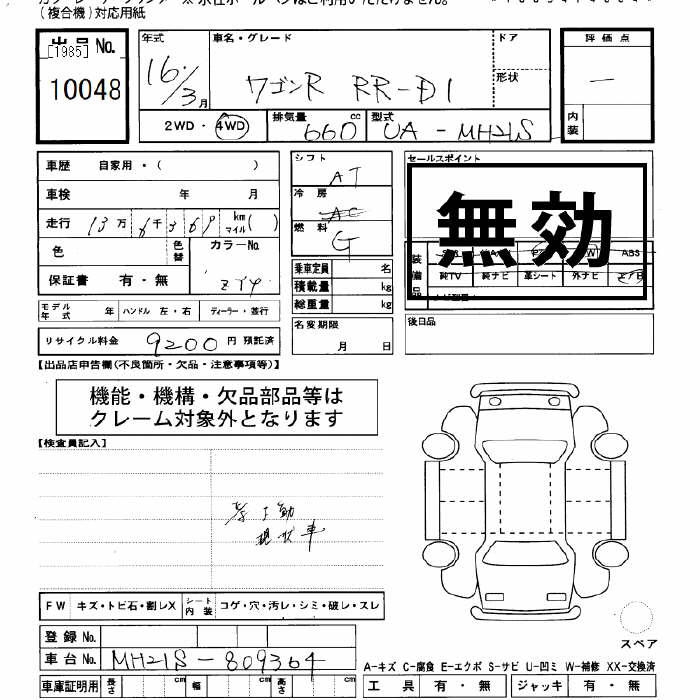 (複合機)対応用紙
出品No.
[1985]
10048
年式
16/3月
車名・グレード
ワゴンR RR-DI
ドア
形状
2WD・4WD
排気量 660 cc
型式 UA-MH21S
評価点
内装
車歴 自家用・( )
車検 年 月
走行 13万6千369 km マイル( )
色 色替 カラーNo. ZY4
保証書 有・無
モデル年式 年 ハンドル 左・右 ディーラー・並行
リサイクル料金 9200 円 預託済
シフト AT
冷房 AC
燃料 G
乗車定員 名
積載量 kg
総重量 kg
名変期限 月 日
セールスポイント
無効
装備品
ABS
純TV 純ナビ 革シート 外ナビ エアB
後日品
【出品店申告欄(不良箇所・欠品・注意事項等)】
機能・機構・欠品部品等は
クレーム対象外となります
【検査員記入】
現状車
FW キズ・トビ石・割レX シート内装 コゲ・穴・汚レ・シミ・破レ・スレ
登録No.
車台No. MH21S-809364
車庫証明用 長さ cm 幅 cm 高さ cm
スペア
A-キズ C-腐食 E-エクボ S-サビ U-凹ミ W-補修 XX-交換済
工具 有・無 ジャッキ 有・無